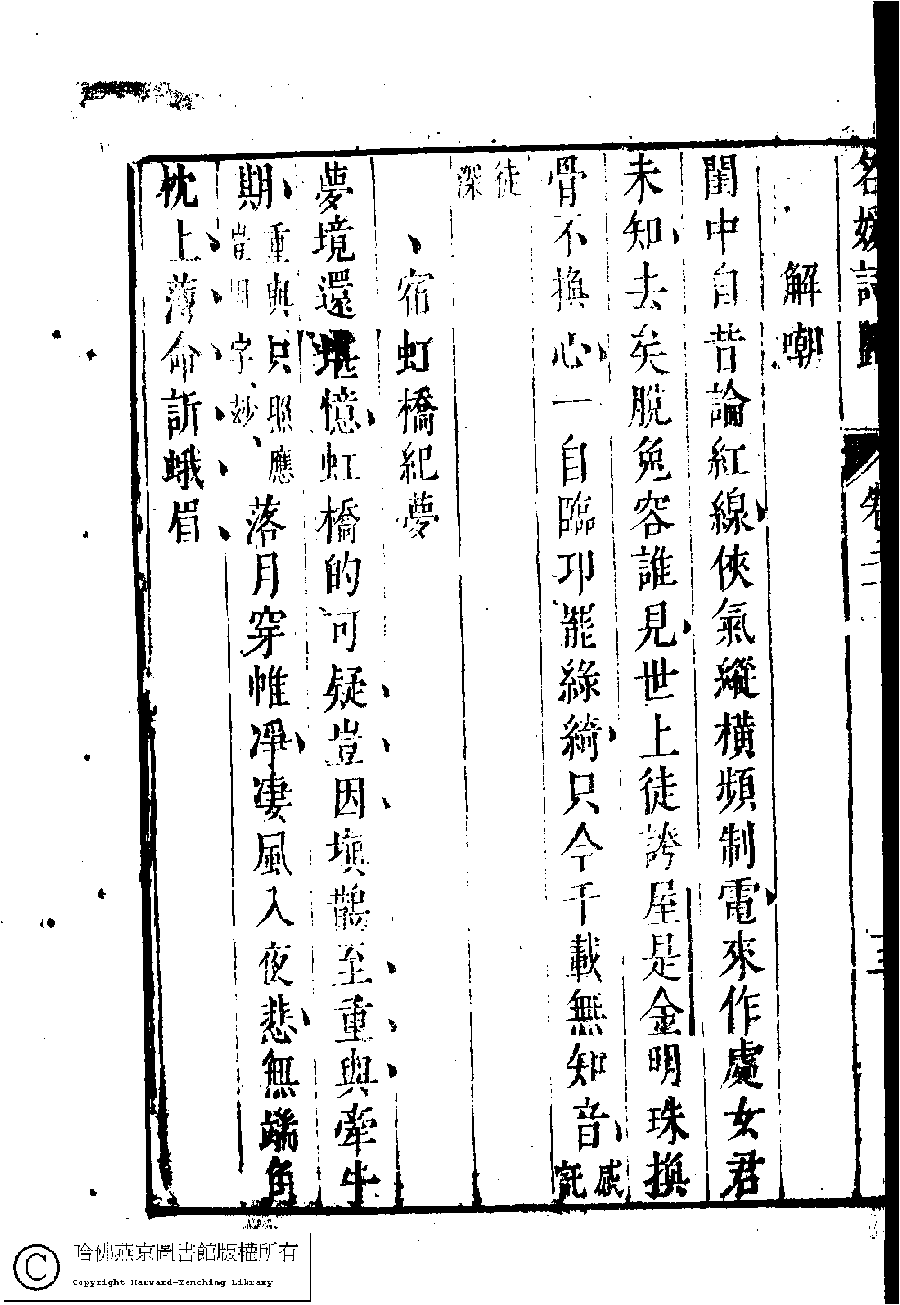 名媛詩歸 卷
解嘲
閨中自昔論紅線俠氣縱橫頻制電來作處女君
未知去矣脫兔容誰見世上徒誇屋是金明珠換
骨不換心一自臨卭罷綠綺只今千載無知音感託
徒深
宿虹橋紀夢
夢境還堪憶虹橋的可疑豈因填鵲至重與牽牛
期重與只照應豈因字妙落月穿帷凈凄風入夜悲無端角
枕上薄命訴蛾眉
哈佛燕京圖書館版權所有
Copyright Harvard-Yenching Library